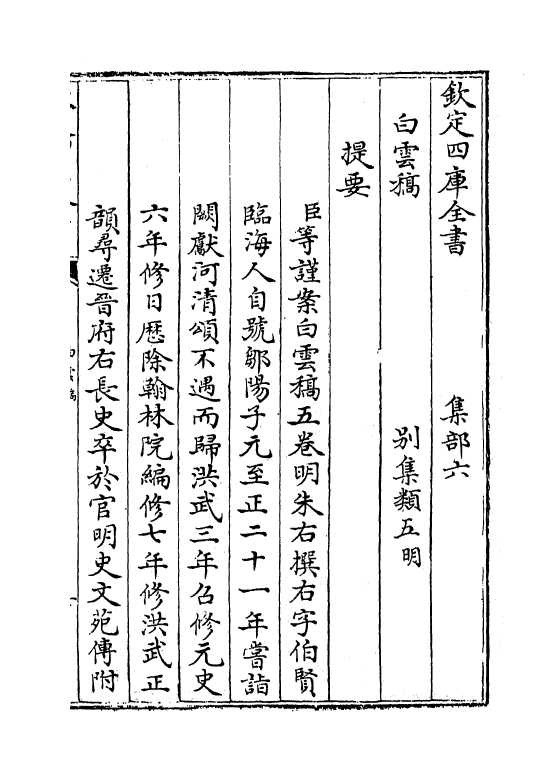 欽定四庫全書 集部六
白雲稿 別集類五明
提要
臣等謹案白雲稿五卷明朱右撰右字伯賢
臨海人自號鄒陽子元至正二十一年嘗詣
闕獻河清頌不遇而歸洪武三年召修元史
六年修日歷除翰林院編修七年修洪武正
韻尋遷晉府右長史卒於官明史文苑傳附
白雲稿